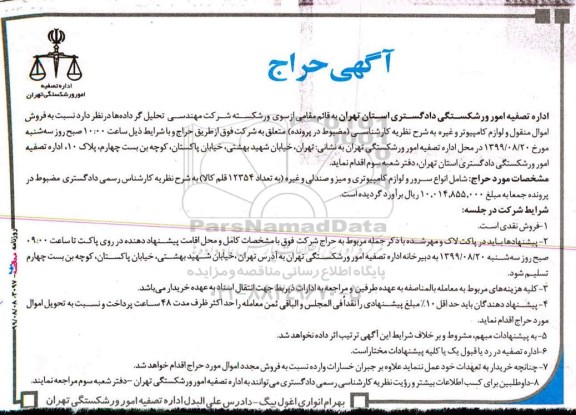 آگهی حراج
اداره تصفیه
امور ورشکستگی تهران
اداره تصفیه امور ورشکستگی دادگستری استان تهران به قائم مقامی از سوی ورشکسته شرکت مهندسی تحلیل گر داده‌ها در نظر دارد نسبت به فروش
اموال منقول و لوازم کامپیوتر و غیره به شرح نظریه کارشناسی (مضبوط در پرونده) متعلق به شرکت فوق از طریق حراج و با شرایط ذیل ساعت ۱۰:۰۰ صبح روز سه‌شنبه
مورخ ۱۳۹۹/۰۸/۲۰ در محل اداره تصفیه امور ورشکستگی تهران به نشانی: تهران، خیابان شهید بهشتی، خیابان پاکستان، کوچه بن بست چهارم، پلاک ۱۰، اداره تصفیه
امور ورشکستگی دادگستری استان تهران، دفتر شعبه سوم اقدام نماید.
مشخصات مورد حراج: شامل انواع سرور و لوازم کامپیوتری و میز و صندلی و غیره (به تعداد ۱۲۳۵۴ قلم کالا) به شرح نظریه کارشناس رسمی دادگستری مضبوط در
پرونده جمعا به مبلغ ۱۰,۰۱۴,۸۵۵,۰۰۰ ریال برآورد گردیده است.
شرایط شرکت در جلسه:
۱-فروش نقدی است.
۲-پیشنهادها باید در پاکت لاک و مهر شده با ذکر جمله مربوط به حراج شرکت فوق با مشخصات کامل و محل اقامت پیشنهاد دهنده در روی پاکت تا ساعت ۰۹:۰۰
صبح روز سه‌شنبه ۱۳۹۹/۰۸/۲۰ به دبیرخانه اداره تصفیه امور ورشکستگی تهران به آدرس تهران، خیابان شهید بهشتی، خیابان پاکستان، کوچه بن بست چهارم
تسلیم شود.
۳-کلیه هزینه‌های مربوط به معامله بالمناصفه به عهده طرفین و مراجعه به ادارات ذیربط جهت انتقال اسناد به عهده خریدار می‌باشد.
۴-پیشنهاد دهندگان باید حداقل ۱۰٪ مبلغ پیشنهادی را نقدا فی المجلس و الباقی ثمن معامله را حداکثر ظرف مدت ۴۸ ساعت پرداخت و نسبت به تحویل اموال
مورد حراج اقدام نماید.
۵-به پیشنهادات مبهم، مشروط و بر خلاف شرایط این آگهی ترتیب اثر داده نخواهد شد.
۶-اداره تصفیه در رد یا قبول یک یا کلیه پیشنهادات مختار است.
۷-چنانچه خریدار به تعهدات خود عمل ننماید علاوه بر جبران خسارات وارده نسبت به فروش مجدد اموال مورد حراج اقدام خواهد شد.
۸-داوطلبین برای کسب اطلاعات بیشتر و رؤیت نظریه کارشناسی رسمی دادگستری می‌توانند به اداره تصفیه امور ورشکستگی تهران -دفتر شعبه سوم مراجعه نمایند.
بهرام انواری اغول بیگ - دادرس علی البدل اداره تصفیه امور ورشکستگی تهران
ParsNamadData
پایگاه اطلاع رسانی مناقصه و مزایده